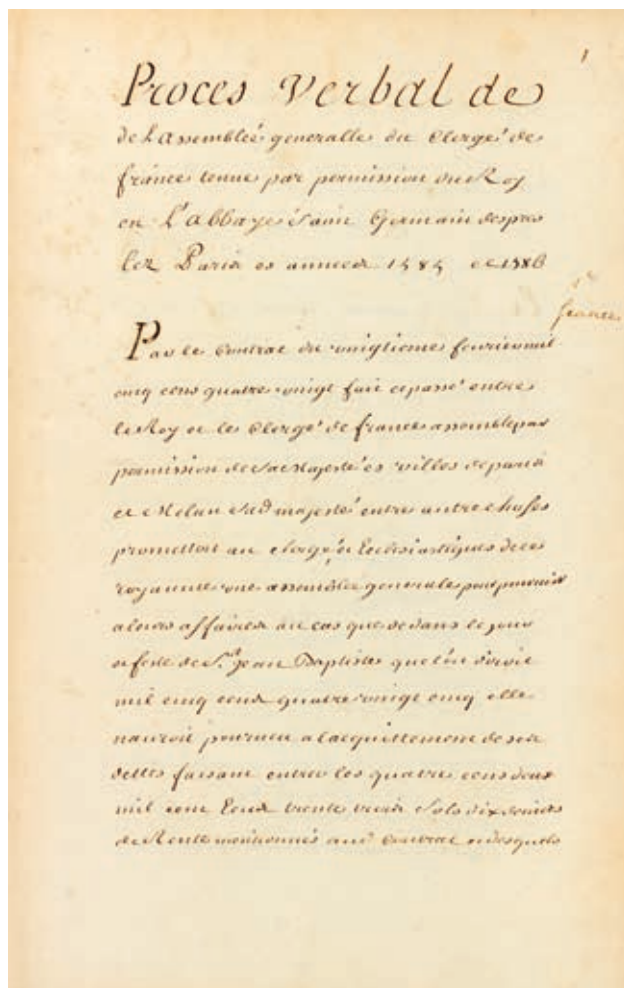 1
Proces Verbal de
de L'assembleé generalle du Clergé de
france tenue par permission du Roy
en L'abbaye Saint Germain despres
lez Paris es années 1585 et 1586
1re
seance
Par le Contrat du vingtieme feurier mil
cinq cens quatre vingt fait et passé entre
le Roy et le Clergé de france assemblé par
permission de sa Majesté es villes de paris
et Melun sad majesté entre autre choses
promettoit au clergé et Ecclesiastiques de ce
royaume une assemblée generale pour pouruoir
a leurs affaires au cas que dedans le jour
et feste de St. Jean Baptiste que l'on diroit
mil cinq cens quatre vingt cinq elle
nauroit pourueu a lacquittement de ses
dettes faisant entrer les quatre cens deux
mil cent Ecus trente trois sols dix deniers
de Rente mentionnés aud Contrat et desquels